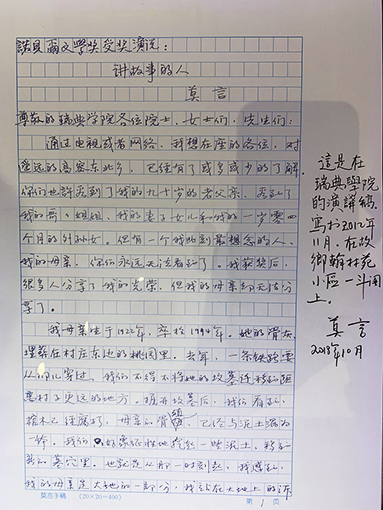 诺贝尔文学奖受奖演说：
讲故事的人
莫言
尊敬的瑞典学院各位院士，女士们，先生们：
通过电视或者网络，我想在座的各位，对
遥远的高密东北乡，已经有了或多或少的了解。
你们也许看到了我的九十岁的老父亲，看到了
我的哥哥姐姐，我的妻子女儿和我的一岁零四
个月的外孙女。但有一个我此刻最想念的人，
我的母亲，你们永远无法看到了。我获奖后，
很多人分享了我的光荣，但我的母亲却无法分
享了。
我母亲生于1922年，卒于1994年。她的骨灰，
埋葬在村庄东边的桃园里。去年，一条铁路要
从那儿穿过，我们不得不将她的坟墓迁移到距
离村子更远的地方。掘开坟墓后，我们看到，
棺木已经腐朽，母亲的骨殖，已经与泥土混为
一体。我们只好象征性地挖起一些泥土，移到
新的墓穴里。也就是从那一时刻起，我感到，
我的母亲是大地的一部分，我站在大地上的诉
莫言手稿 (20×20=400) 第1页
這是在
瑞典學院
的演講稿，
寫於2012年
11月，在故
鄉翰林苑
小區一斗閣
上。
莫言
2018年10月